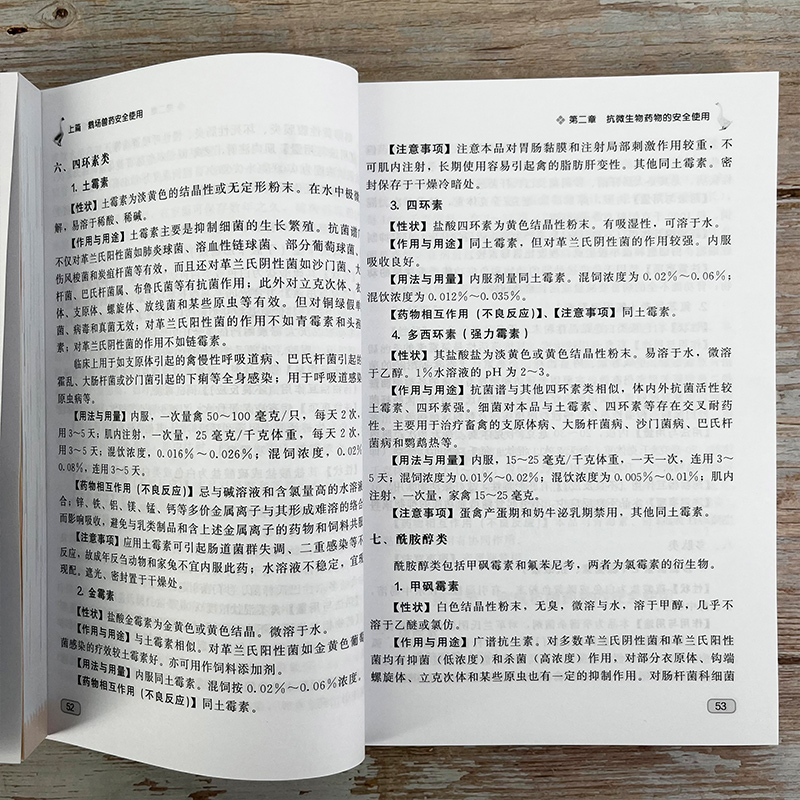 上篇 鹅场兽药安全使用
六、四环素类
1. 土霉素
【性状】土霉素为淡黄色的结晶性或无定形粉末。在水中极微
解，易溶于稀酸、稀碱。
【作用与用途】土霉素主要是抑制细菌的生长繁殖。抗菌谱
不仅对革兰氏阳性菌如肺炎球菌、溶血性链球菌、部分葡萄球菌、
伤风梭菌和炭疽杆菌等有效，而且还对革兰氏阴性菌如沙门菌、大
杆菌、巴氏杆菌属、布鲁氏菌等有抗菌作用；此外对立克次体、衣
体、支原体、螺旋体、放线菌和某些原虫等有效。但对铜绿假单
菌、病毒和真菌无效；对革兰氏阳性菌的作用不如青霉素和头孢
素；对革兰氏阴性菌的作用不如链霉素。
临床上用于如支原体引起的禽慢性呼吸道病、巴氏杆菌引起的
霍乱、大肠杆菌或沙门菌引起的下痢等全身感染；用于呼吸道感染
原虫病等。
【用法与用量】内服，一次量禽 50～100 毫克/只，每天 2 次，
用 3～5 天；肌内注射，一次量，25 毫克/千克体重，每天 2 次，
用 3～5 天；混饮浓度，0.016%～0.026%；混饲浓度，0.02
0.08%，连用 3～5 天。
【药物相互作用（不良反应）】忌与碱溶液和含氯量高的水溶液
合；锌、铁、铝、镁、锰、钙等多价金属离子与其形成难溶的络合
而影响吸收，避免与乳类制品和含上述金属离子的药物和饲料共服
【注意事项】应用土霉素可引起肠道菌群失调、二重感染等不
反应，故成年反刍动物和家兔不宜内服此药；水溶液不稳定，宜
现配，遮光、密封置于干燥处。
2. 金霉素
【性状】盐酸金霉素为金黄色或黄色结晶。微溶于水。
【作用与用途】与土霉素相似。对革兰氏阳性菌如金黄色葡萄
菌感染的疗效较土霉素好。亦可用作饲料添加剂。
【用法与用量】内服同土霉素。混饲按 0.02%～0.06%浓度。
【药物相互作用（不良反应）】同土霉素。
52
第二章 抗微生物药物的安全使用
【注意事项】注意本品对胃肠黏膜和注射局部刺激作用较重，不
可肌内注射，长期使用容易引起禽的脂肪肝变性。其他同土霉素。密
封保存于干燥冷暗处。
3. 四环素
【性状】盐酸四环素为黄色结晶性粉末。有吸湿性，可溶于水。
【作用与用途】同土霉素，但对革兰氏阴性菌的作用较强。内服
吸收良好。
【用法与用量】内服剂量同土霉素。混饲浓度为 0.02%～0.06%；
混饮浓度为 0.012%～0.035%。
【药物相互作用（不良反应）】、【注意事项】同土霉素。
4. 多西环素（强力霉素）
【性状】其盐酸盐为淡黄色或黄色结晶性粉末。易溶于水，微溶
于乙醇。1%水溶液的 pH 为 2～3。
【作用与用途】抗菌谱与其他四环素类相似，体内外抗菌活性较
土霉素、四环素强。细菌对本品与土霉素、四环素等存在交叉耐药
性。主要用于治疗畜禽的支原体病、大肠杆菌病、沙门菌病、巴氏杆
菌病和鹦鹉热等。
【用法与用量】内服，15～25 毫克/千克体重，一天一次，连用 3～
5 天；混饲浓度为 0.01%～0.02%；混饮浓度为 0.005%～0.01%；肌内
注射，一次量，家禽 15～25 毫克。
【注意事项】蛋禽产蛋期和奶牛泌乳期禁用，其他同土霉素。
七、酰胺醇类
酰胺醇类包括甲砜霉素和氟苯尼考，两者为氯霉素的衍生物。
1. 甲砜霉素
【性状】白色结晶性粉末，无臭，微溶与水，溶于甲醇，几乎不
溶于乙醚或氯仿。
【作用与用途】广谱抗生素。对多数革兰氏阴性菌和革兰氏阳性
菌均有抑菌（低浓度）和杀菌（高浓度）作用，对部分衣原体、钩端
螺旋体、立克次体和某些原虫也有一定的抑制作用。对肠杆菌科细菌
53